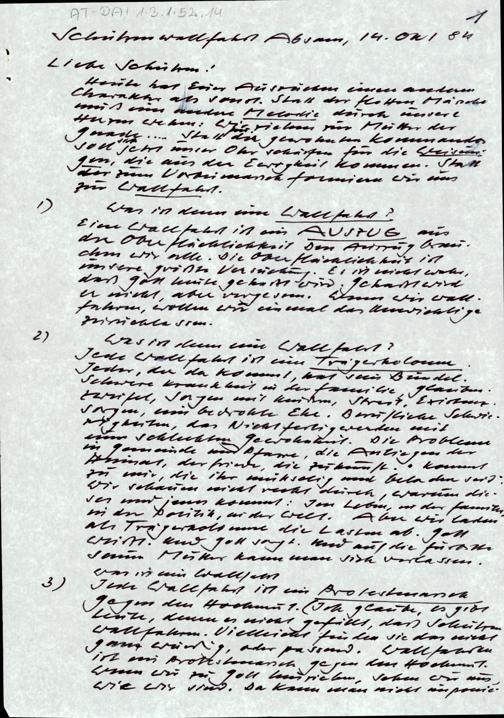 AT-DAI 1.3.1.52.14
1
Schützenwallfahrt Absam, 14. Okt 84
Liebe Schützen!
Heute hat Euer Ausrücken einen anderen
Charakter als sonst. Statt der flotten Märsche
muß eine andere Melodie durch unsere
Herzen wehen: Wir ziehen zur Mutter der
Gnade.... Statt der gewohnten Kommandos
soll sich jetzt unser Ohr schärfen für die
gen, die aus der Ewigkeit kommen. Statt
der zum Vorbeimarsch formieren wir uns
zur Wallfahrt.
1) Was ist denn eine Wallfahrt?
Eine Wallfahrt ist ein AUSZUG aus
der Oberflächlichkeit. Den Auszug brau-
chen wir alle. Die Oberflächlichkeit ist
unsere größte Versuchung. Es ist nicht wahr,
daß Gott heute gehaßt wird. Gehaßt wird
er nicht, aber vergessen. Wenn wir wall-
fahren, wollen wir einmal das Unwichtige
zurücklassen.
2) Was ist denn eine Wallfahrt?
Jede Wallfahrt ist eine Trägerkolonne.
Jeder, der da kommt, hat sein Bündel.
Schwere Krankheit in der Familie, Glauben-
zweifel, Sorgen mit Kindern, Streit, Existenz-
sorgen, eine bedrohte Ehe. Berufliche Schwie-
rigkeiten, das Nichtfertigwerden mit
einer schlechten Gewohnheit. Die Probleme
in Gemeinde und Pfarre, die Anliegen der
Heimat, der Friede, die Zukunft. "Kommt
zu mir, die ihr mühselig und beladen seid."
Wir schauen nicht recht durch, warum die-
ses und jenes kommt. Im Leben, in der Familie
in der Politik, in der Welt. Aber wir laden
als Trägerkolonne die Lasten ab. Gott
weiß. Und Gott sorgt. Und auf die Fürbitte
seiner Mutter kann man sich verlassen.
3) Was ist eine Wallfahrt
Jede Wallfahrt ist ein Protestmarsch
gegen den Hochmut. (Ich glaube, es gibt
Leute, denen es nicht gefällt, daß Schützen
wallfahren. Vielleicht finden sie das nicht
ganz würdig, oder passend. Wallfahrten
ist ein Protestmarsch gegen den Hochmut.
Wenn wir zu Gott hinziehen, sehen wir uns
wie wir sind. Da kann man nicht imponie-